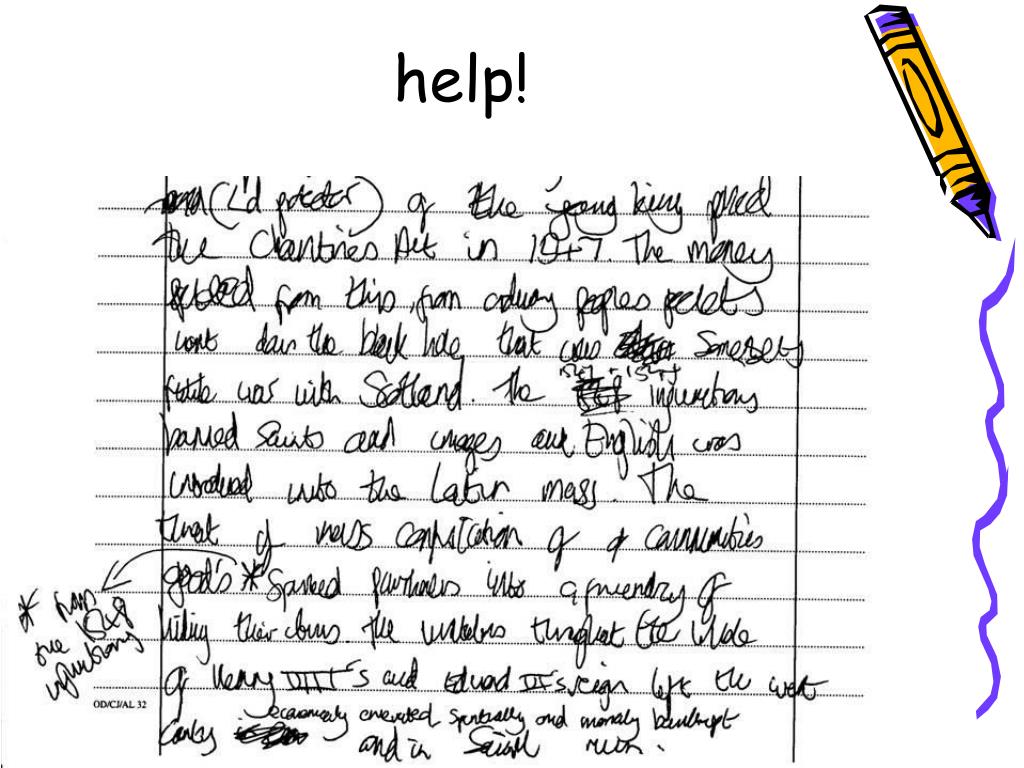 help!
(L'd protector) of the young king passed
the Chantries Act in 1547. The money
from this from ordinary peoples pockets
went down the black hole that was Somersets
1547 + 1547
was with Scotland. The injunctions
banned Saints and images and English was
introduced into the Latin mass. The
threat of mass confiscation of communities
goods * Spurred parishoners into a frenzy of
* from
the 1548
injunctions
hiding their the throughout the whole
of Henry VIII's and Edward VI's reign left the west
OD/CJ/AL 32
economically spiritually and morally bankrupt
and in ruin.